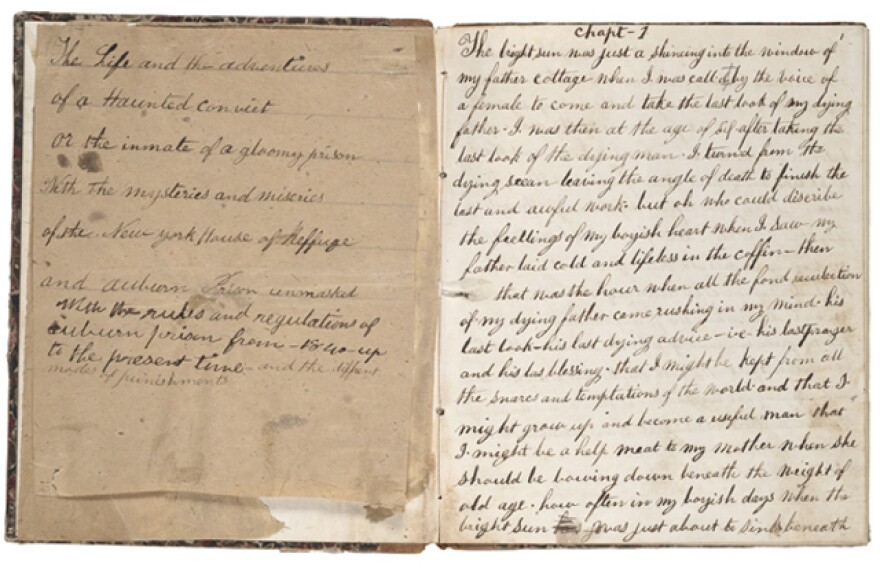 The Life and the adventures
of a Haunted Convict
Or the inmate of a gloomy prison
With the mysteries and miseries
of the New york House of Reffuge
and auburn Prison unmasked
With the rules and regulations of
auburn prison from - 1840 - up
to the present time - and the diffent
modes of punishments
Chapt - 1
The bright sun was just a shineing into the window of
my father cottage when I was calld by the voice of
a female to come and take the last look of my dying
father - I was then at the age of six after taking the
last look of the dying man - I turned from the
dying scean leaving the angle of death to finish the
last and awful work - but oh who could discribe
the feellings of my boyish heart when I saw my
father laid cold and lifeless in the coffin - then
that was the hour when all the fond recolection
of my dying father come rushing in my mind - his
last look - his last dying advice - i-e - his last prayer
and his las blessing - that I might be kept from all
the snares and temptations of the world - and that I
might grow up and become a useful man that
I might be a help meat to my mother when she
should be bowing down beneath the weight of
old age - how often in my boyish days when the
bright sun was just about to sink beneath